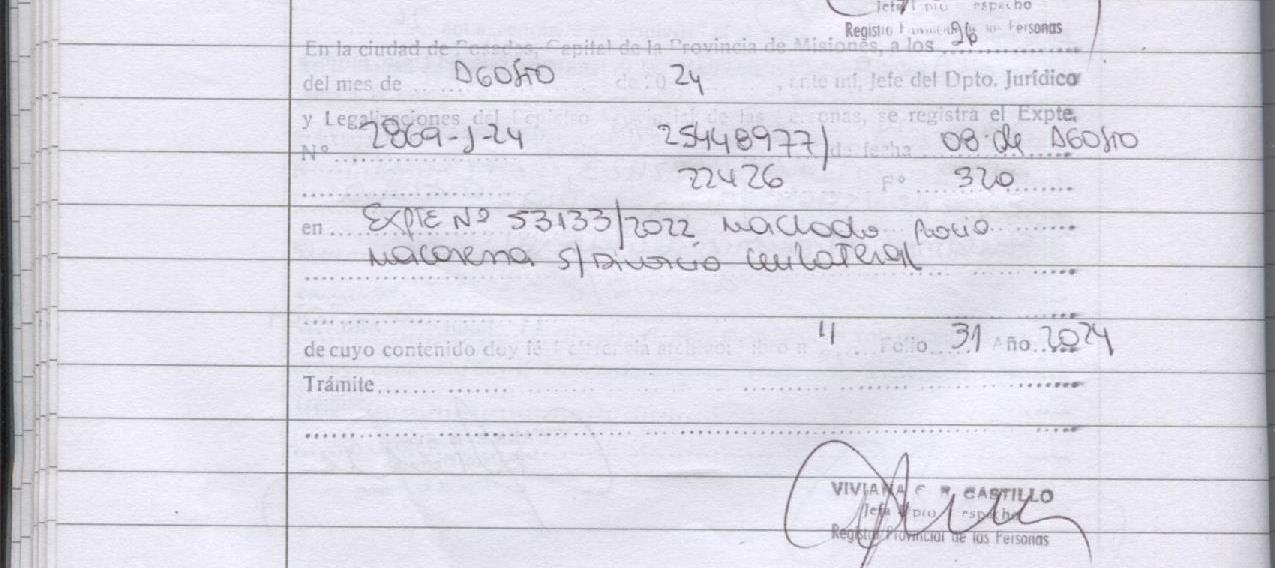 Jefa Dpto Despacho
Registro Provincial de las Personas
En la ciudad de Posadas, Capital de la Provincia de Misiones, a los 26
del mes de AGOSTO de 20 24, ante mí, Jefe del Dpto. Jurídico
y Legalizaciones del Registro Provincial de las Personas, se registra el Expte.
Nº 2869-J-24 25448977/ de fecha 08 de AGOSTO
22426 Fº 320
en EXPTE Nº 53133/2022 Machado Rocio
Macarena S/Divorcio Unilateral
de cuyo contenido doy fé. Referencia archivo: Libro n 4 Folio 31 Año 2024
Trámite
VIVIANA CASTILLO
Jefa Dpto Despacho
Registro Provincial de las Personas